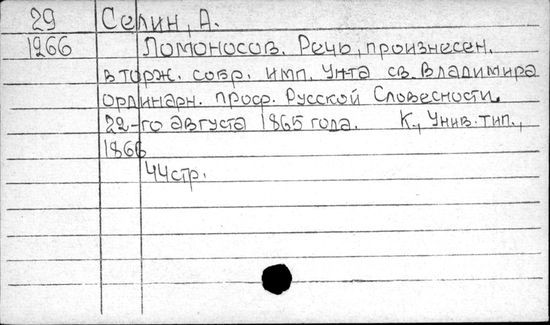 29 Селин, А.
1266 Ломоносов. Речь, произнесен.
в торж. собр. имп. Унта св. Владимира
ординарн. проф. Русской Словесности.
22-го августа 1865 года. К., Унив. тип.,
1866
44 стр.